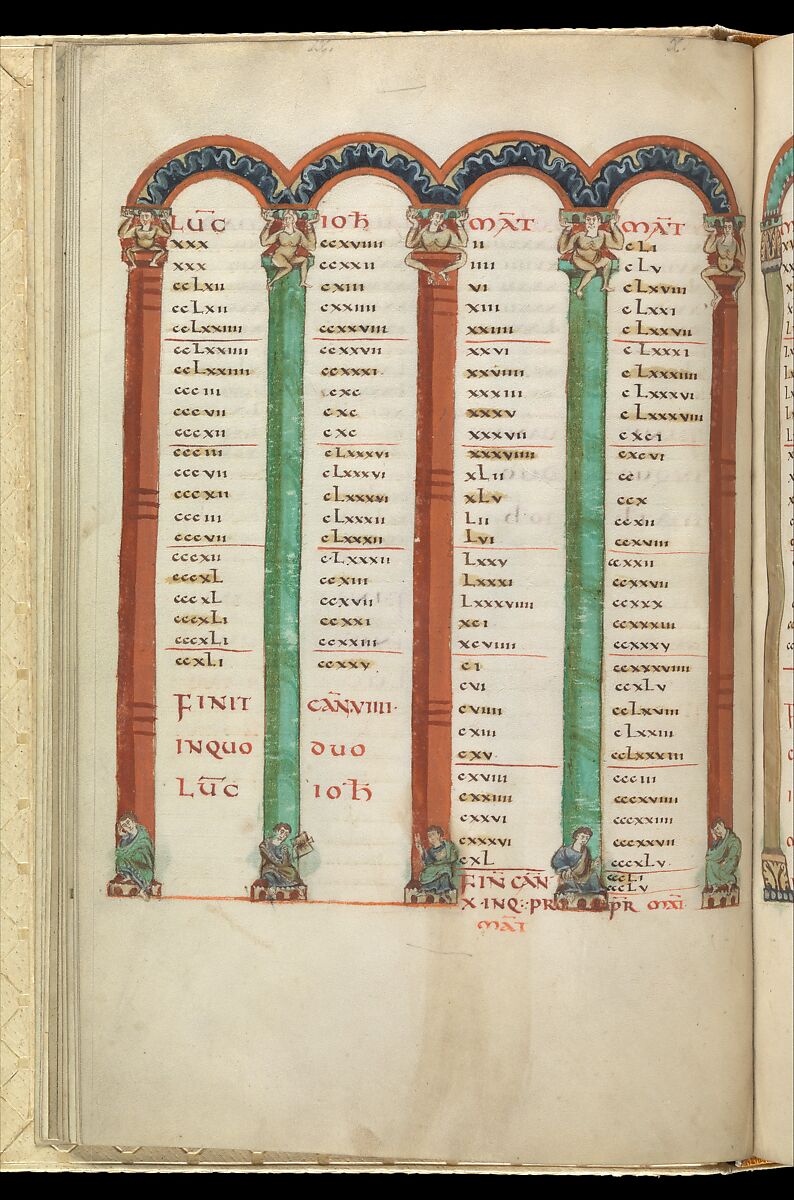 LUC
xxx
xxx
ccLxii
ccLxii
ccLxxiiii
ccLxxiiii
ccLxxiiii
ccciii
cccvii
cccxii
ccciii
cccvii
cccxii
ccciii
cccvii
cccxii
cccxL
cccxL
cccxLi
cccxLi
ccxLi
FINIT
INQUO
LUC
IOH
ccxviiii
ccxxii
cxiii
cxxiiii
ccxxviii
ccxxvii
ccxxxi
cxc
cxc
cxc
cLxxxvi
cLxxxvi
cLxxxvi
cLxxxii
cLxxxii
cLxxxii
ccxiii
ccxvii
ccxxi
ccxxiii
ccxxv
CAN̄VIIII.
DUO
IOH
MAT
ii
iiii
vi
xiii
xxiiii
xxvi
xxviiii
xxxiii
xxxv
xxxvii
xxxviiii
xLii
xLv
Lii
Lvi
Lxxv
Lxxxi
Lxxxviiii
xci
xcviiii
ci
cvi
cviiii
cxiii
cxv
cxviii
cxxiiii
cxxvi
cxxxvi
cxL
FIN̄ CAN̄
X·INQ:·PR
MAT
MAT
cLi
cLv
cLxviii
cLxxi
cLxxvii
cLxxxi
cLxxxiiii
cLxxxvi
cLxxxviii
cxci
cxcvi
cc
ccx
ccxii
ccxviii
ccxxii
ccxxvii
ccxxx
ccxxxiii
ccxxxv
ccxxxviiii
ccxLv
ccLxviii
cLxxiii
ccLxxxiii
ccciii
cccxviiii
cccxxiiii
cccxxvii
cccxLv
cccLi
cccLv
PR MAT